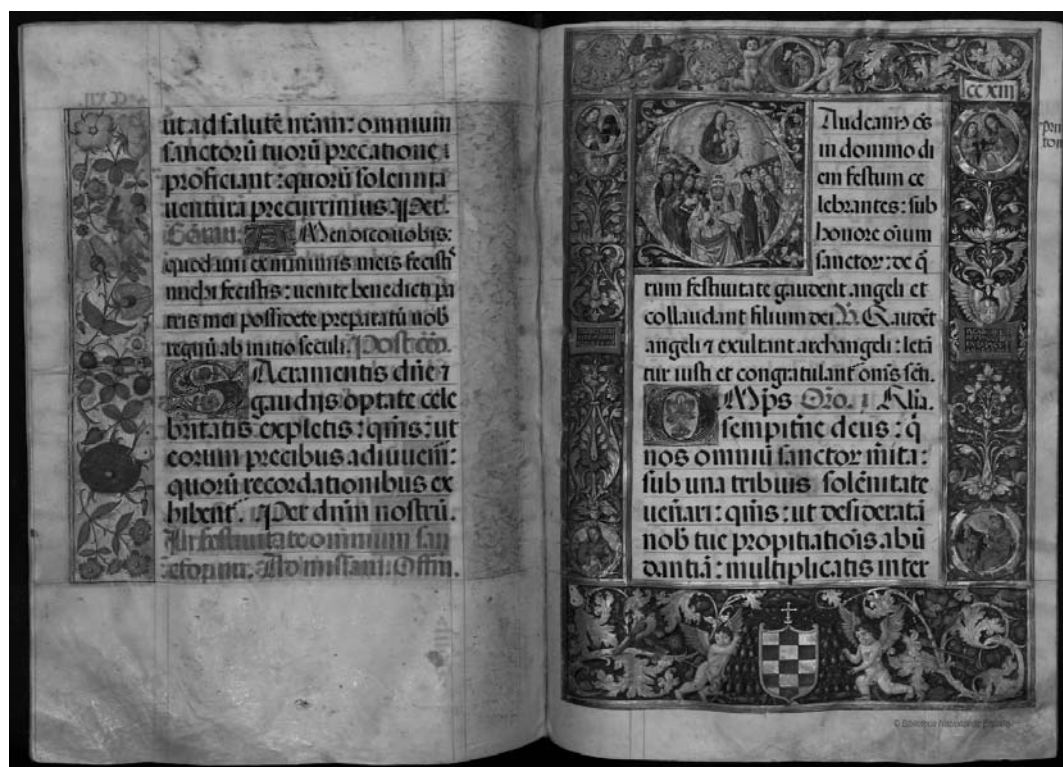 ut ad salutē nr̄am: omnium
sanctorū tuorū precatione
proficiant: quorū solennia
uentura precurrimus. Per.
Cōmu. AMen dico uobis:
quod uni ex minimis meis fecistꝭ
michi fecistis: uenite benedicti pa
tris mei possidete preparatū uob̄
regnū ab initio seculi. Postcōō.
SAcramentis dn̄e ⁊
gaudijs optate cele
britatis expletis: qm̄s: ut
eorum precibus adiuuem̄:
quorū recordationibus ex
hibent̄. Per dn̄m nostrū.
In festiuitate omnium san
ctorum. Ad missam. Offm̄.
CC XIII
GAudeamꝰ oē̄s
in domino di
em festum ce
lebrantes: sub
honore oīum
sanctoꝝ: de q̄
rum festiuitate gaudent angeli et
collaudant filium dei. V. Gaudēt
angeli ⁊ exultant archangeli: letā
tur iusti et congratulant̄ om̄s sc̄ti.
OMps Oīo. Alia.
sempitn̄e deus: q̄
nos omniū sanctoꝝ m̄ita:
sub una tribuis solēnitate
uen̄ari: qm̄s: ut desideratā
nob̄ tue propitiatiōis abū
dantiā: multiplicatis inter
© Biblioteca Nacional de España